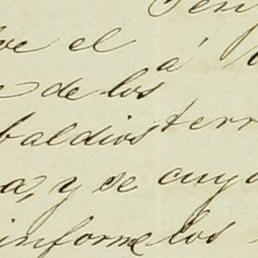 Ten
ve el á
e de los
baldios terr
a, y de cuya
informe los